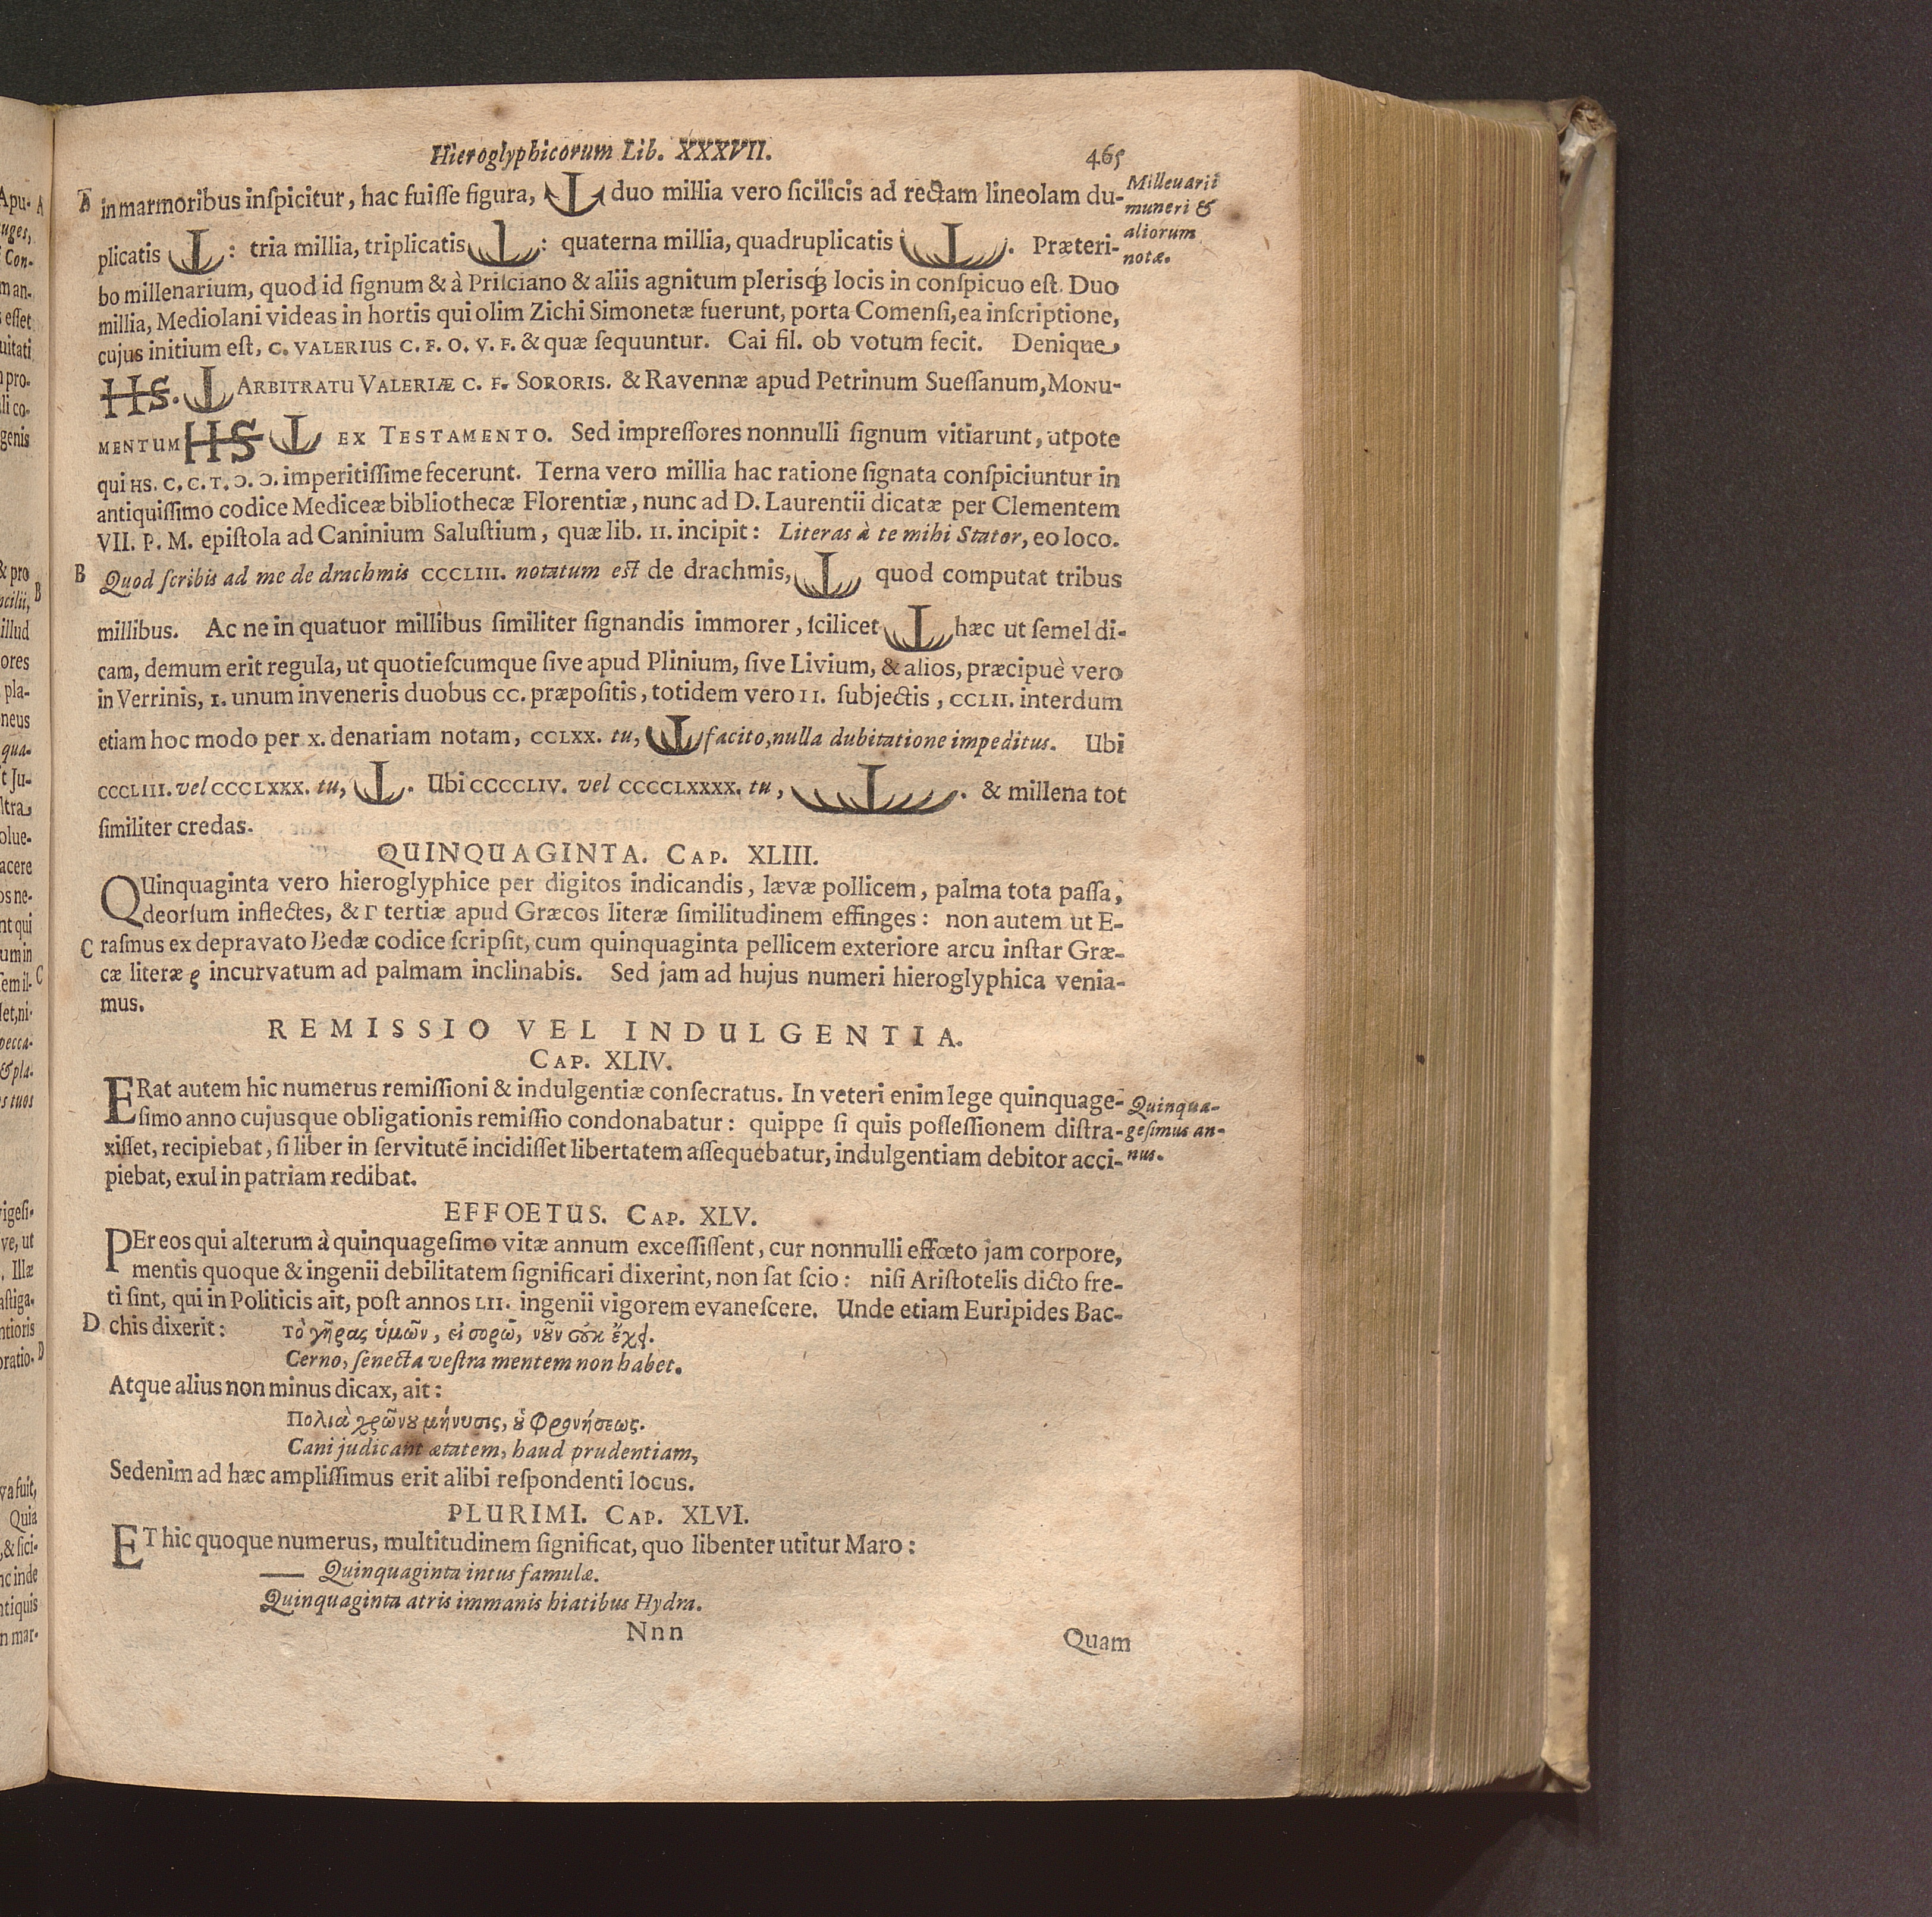 Hieroglyphicorum Lib. XXXVII. 465
A in marmoribus inſpicitur, hac fuiſſe figura, duo millia vero ſicilicis ad rectam lineolam du-
Millenarii
muneri &
aliorum
notæ.
plicatis : tria millia, triplicatis : quaterna millia, quadruplicatis . Præteri-
bo millenarium, quod id ſignum & à Priſciano & aliis agnitum pleriſq́; locis in conſpicuo eſt. Duo
millia, Mediolani videas in hortis qui olim Zichi Simonetæ fuerunt, porta Comenſi, ea inſcriptione,
cujus initium eſt, C. VALERIUS C. F. O. V. F. & quæ ſequuntur. Cai fil. ob votum fecit. Denique
HS. ARBITRATU VALERIÆ C. F. SORORIS. & Ravennæ apud Petrinum Sueſſanum, MONU-
MENTUM HS EX TESTAMENTO. Sed impreſſores nonnulli ſignum vitiarunt, utpote
qui HS. C. C. T. Ɔ. Ɔ. imperitiſſime fecerunt. Terna vero millia hac ratione ſignata conſpiciuntur in
antiquiſſimo codice Mediceæ bibliothecæ Florentiæ, nunc ad D. Laurentii dicatæ per Clementem
VII. P. M. epiſtola ad Caninium Saluſtium, quæ lib. II. incipit: Literas à te mihi Stator, eo loco.
B Quod ſcribis ad me de drachmis CCCLIII. notatum eſt de drachmis, quod computat tribus
millibus. Ac ne in quatuor millibus ſimiliter ſignandis immorer, ſcilicet hæc ut ſemel di-
cam, demum erit regula, ut quotieſcumque ſive apud Plinium, ſive Livium, & alios, præcipuè vero
in Verrinis, I. unum inveneris duobus CC. præpoſitis, totidem vero II. ſubjectis, CCLII. interdum
etiam hoc modo per X. denariam notam, CCLXX. tu, facito, nulla dubitatione impeditus. Ubi
CCCLIII. vel CCCLXXX. tu, . Ubi CCCCLIV. vel CCCCLXXXX. tu, . & millena tot
ſimiliter credas.
QUINQUAGINTA. CAP. XLIII.
QUinquaginta vero hieroglyphice per digitos indicandis, lævæ pollicem, palma tota paſſa,
deorſum inflectes, & Γ tertiæ apud Græcos literæ ſimilitudinem effinges: non autem ut E-
C raſmus ex depravato Bedæ codice ſcripſit, cum quinquaginta pellicem exteriore arcu inſtar Græ-
cæ literæ ς incurvatum ad palmam inclinabis. Sed jam ad hujus numeri hieroglyphica venia-
mus.
REMISSIO VEL INDULGENTIA.
CAP. XLIV.
ERat autem hic numerus remiſſioni & indulgentiæ conſecratus. In veteri enim lege quinquage-
ſimo anno cujusque obligationis remiſſio condonabatur: quippe ſi quis poſſeſſionem diſtra-
xiſſet, recipiebat, ſi liber in ſervitutē incidiſſet libertatem aſſequebatur, indulgentiam debitor acci-
piebat, exul in patriam redibat.
Quinqua-
geſimus an-
nus.
EFFOETUS. CAP. XLV.
PEr eos qui alterum à quinquageſimo vitæ annum exceſſiſſent, cur nonnulli effœto jam corpore,
mentis quoque & ingenii debilitatem ſignificari dixerint, non ſat ſcio: niſi Ariſtotelis dicto fre-
ti ſint, qui in Politicis ait, poſt annos LII. ingenii vigorem evaneſcere. Unde etiam Euripides Bac-
D chis dixerit: Τὸ γῆρας ὑμῶν, εἰσορῶ, νοῦν οὐκ ἔχει.
Cerno, ſenecta veſtra mentem non habet.
Atque alius non minus dicax, ait:
Πολιὰ χρῶνου μήνυσις, οὐ φρονήσεως.
Cani judicant ætatem, haud prudentiam,
Sed enim ad hæc ampliſſimus erit alibi reſpondenti locus.
PLURIMI. CAP. XLVI.
ET hic quoque numerus, multitudinem ſignificat, quo libenter utitur Maro:
—— Quinquaginta intus famulæ.
Quinquaginta atris immanis hiatibus Hydra.
Nnn Quam